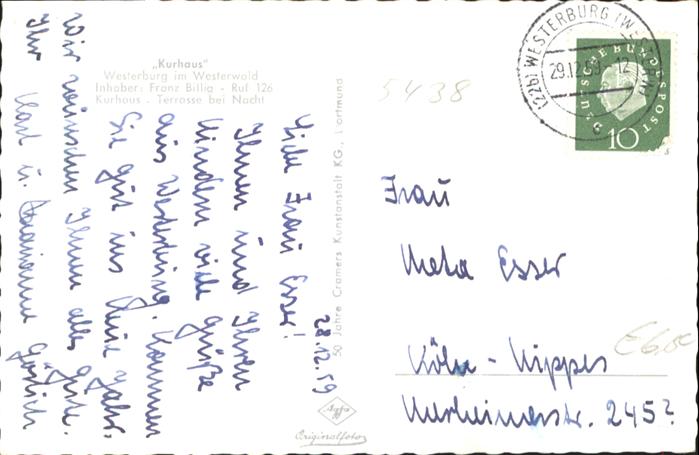 „Kurhaus"
Westerburg im Westerwald
Inhaber: Franz Billig - Ruf 126
Kurhaus - Terrosse bei Nacht
28.12.59
Liebe Frau Esser!
Ihnen und Ihren
Kindern viele Grüße
aus Westerburg. Kommen
Sie gut ins Neue Jahr.
Wir wünschen Ihnen alles Gute.
Ihr Karl u. Marianne
50 Jahre Cramers Kunstanstalt KG., Dortmund
Agfa
Originalfoto
5438
(22b) WESTERBURG (WESTERW)
29.12.59 - 12
c
DEUTSCHE BUNDESPOST
10
Frau
Meta Esser
Köln - Nippes
Merheimerstr. 245?